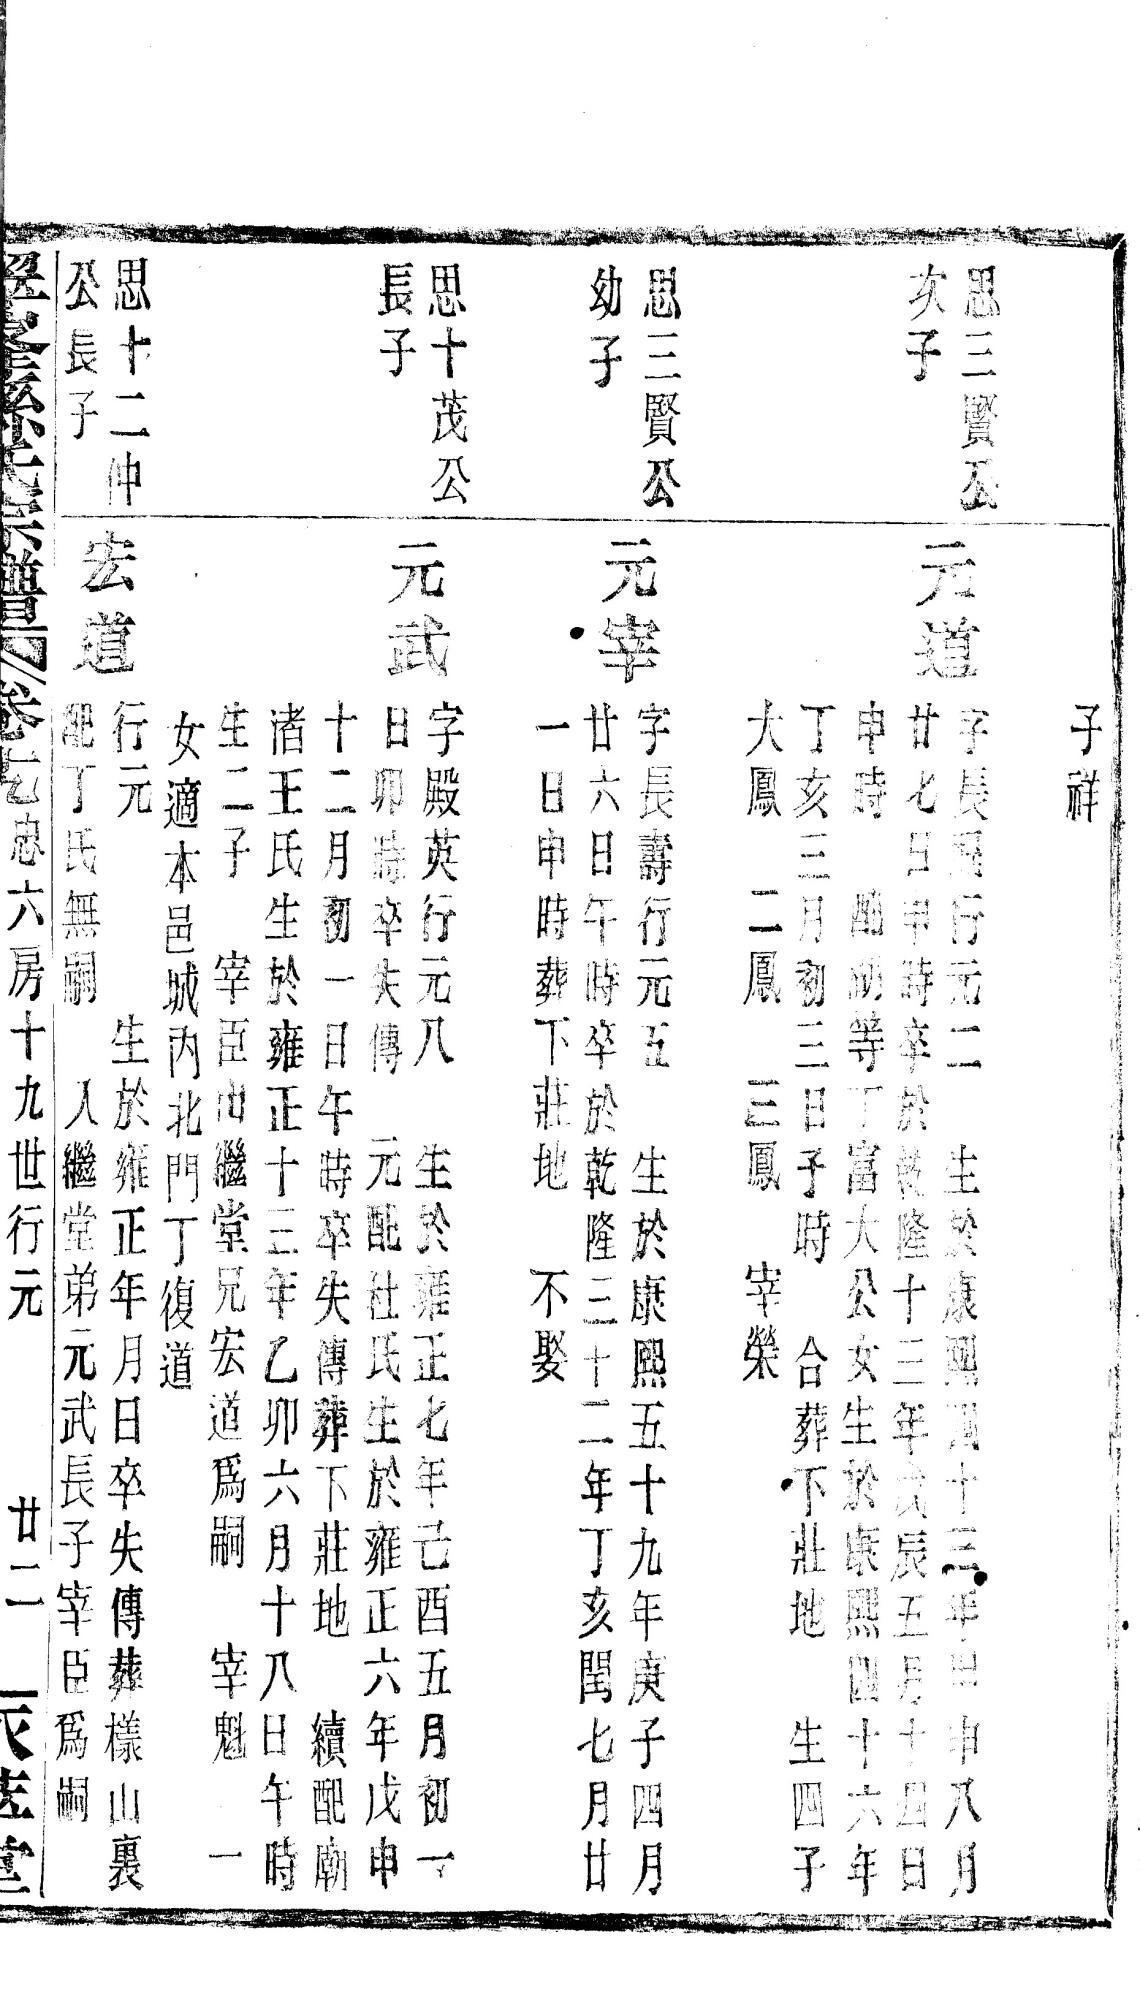 子祥
思三賢公
次子
元道
字長福行元二　生於康熙四十三年甲申八月
廿七日申時卒於乾隆十三年戊辰五月十四日
申時　配等丁富大公女生於康熙四十六年
丁亥三月初三日子時　合葬下莊地　生四子
大鳳　二鳳　三鳳　宰榮
思三賢公
幼子
元宰
字長壽行元五　生於康熙五十九年庚子四月
廿六日午時卒於乾隆三十二年丁亥閏七月廿
一日申時葬下莊地　不娶
思十茂公
長子
元武
字殿英行元八　生於雍正七年己酉五月初一
日卯時卒失傳　元配杜氏生於雍正六年戊申
十二月初一日午時卒失傳葬下莊地　續配廟
渚王氏生於雍正十三年乙卯六月十八日午時
生二子　宰臣出繼堂兄宏道爲嗣　宰魁　一
女適本邑城内北門丁復道
思十二仲
公長子
宏道
行元　生於雍正年月日卒失傳葬樣山裏
配丁氏無嗣　入繼堂弟元武長子宰臣爲嗣
宗譜　卷七忠六房十九世行元　廿二　堂